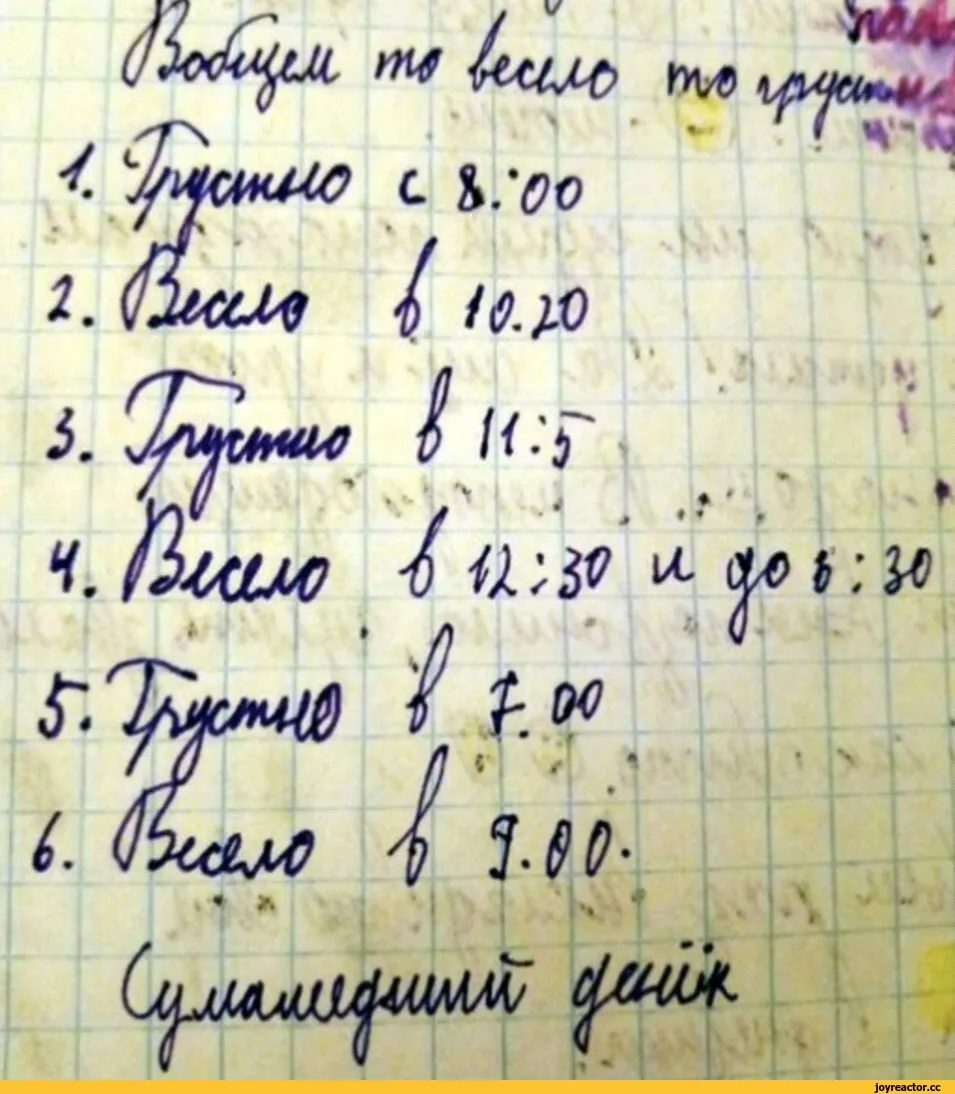 Вобщем то весело то грустно
1. Грустно с 8:00
2. Весело в 10.20
3. Грустно в 11:5
4. Весело в 12:30 и до 6:30
5. Грустно в 7.00
6. Весело в 9.00.
Сумашедший денёк
joyreactor.cc